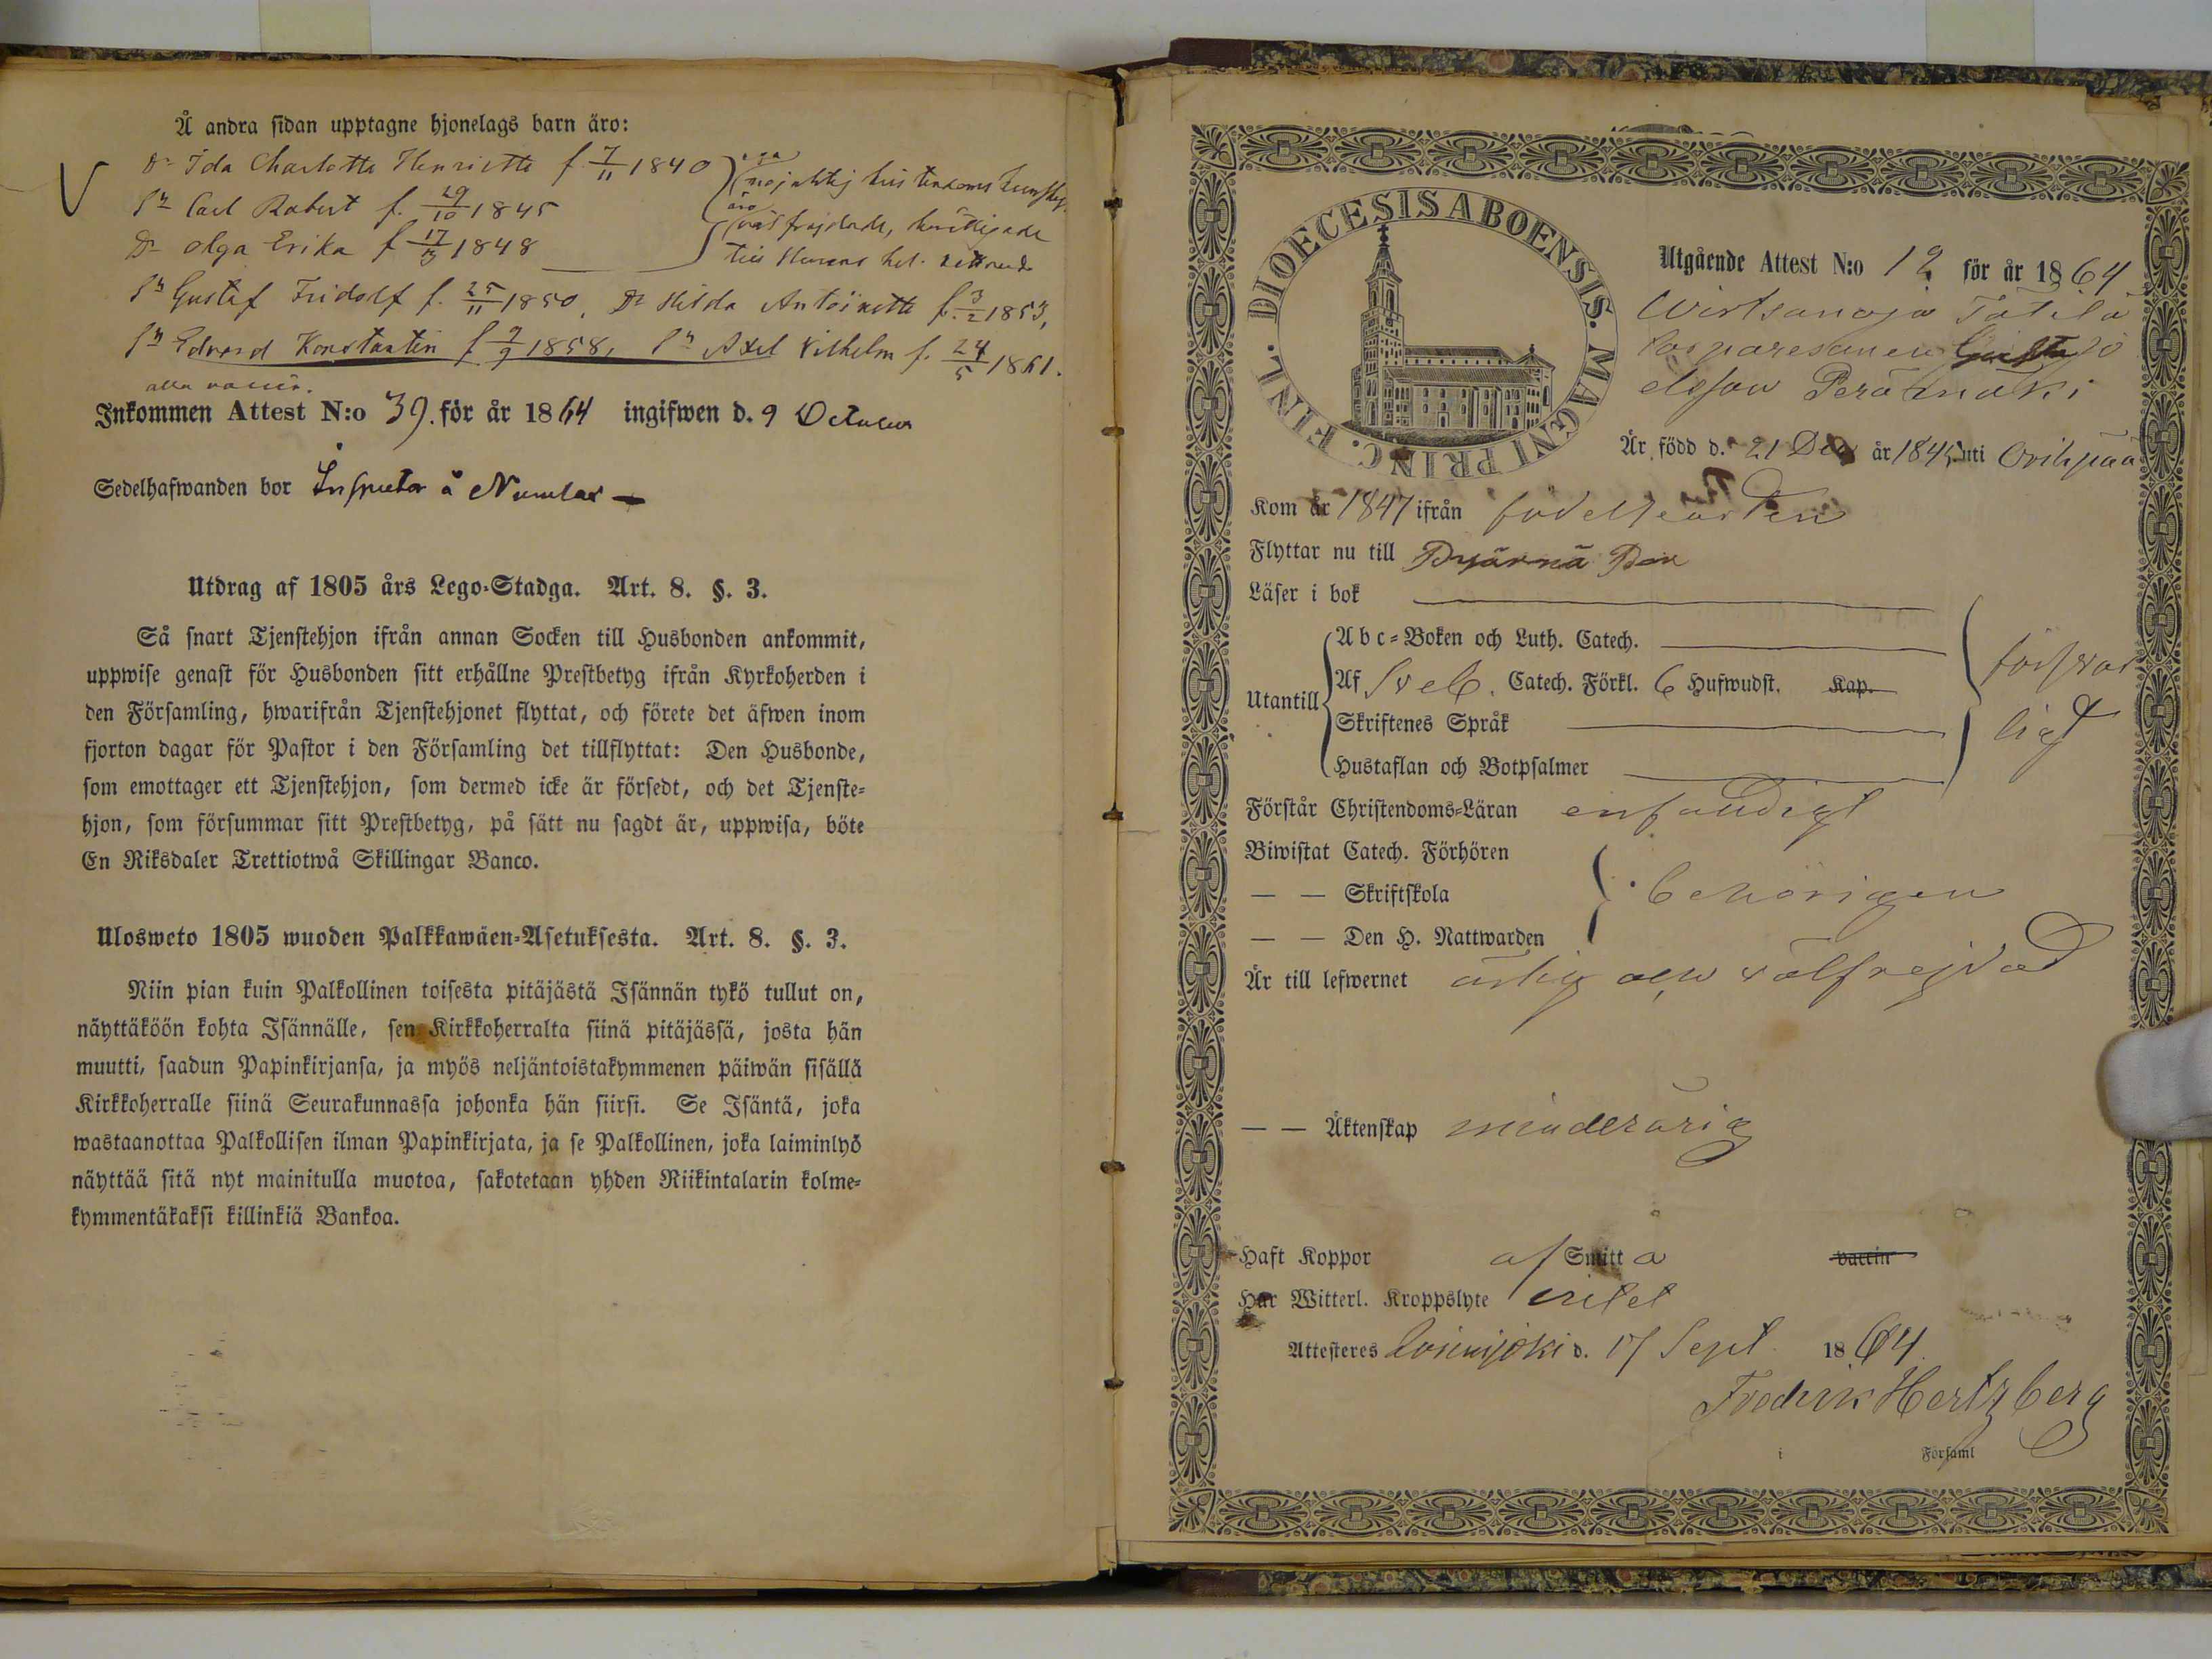 Å andra sidan upptagne hjonelags barn äro:
Dr Ida Charlotta Henrietta f. 7/11 1840
Sn Carl Robert f. 29/10 1845
Dr Olga Erika f 17/3 1848
äro
Sn Gustaf Fridolf f. 25/11 1850, Dr Hilda Antoinette f. 3/2 1853,
Sn Edvard Konstantin f 7/9 1858, Sn Axel Vilhelm f. 24/5 1861.
alla vaccin.
Inkommen Attest N:o 39. för år 1864 ingifwen d. 9 October
Sedelhafwanden bor Inspector å
Utdrag af 1805 års Lego-Stadga. Art. 8. §. 3.
Så snart Tjenstehjon ifrån annan Socken till Husbonden ankommit,
uppwise genast för Husbonden sitt erhållne Prestbetyg ifrån Kyrkoherden i
den Församling, hwarifrån Tjenstehjonet flyttat, och förete det äfwen inom
fjorton dagar för Pastor i den Församling det tillflyttat: Den Husbonde,
som emottager ett Tjenstehjon, som dermed icke är försedt, och det Tjenste-
hjon, som försummar sitt Prestbetyg, på sätt nu sagdt är, uppwisa, böte
En Riksdaler Trettiotwå Skillingar Banco.
Ulosweto 1805 wuoden Palkkawäen-Asetuksesta. Art. 8. §. 3.
Niin pian kuin Palkollinen toisesta pitäjästä Isännän tykö tullut on,
näyttäköön kohta Isännälle, sen Kirkkoherralta siinä pitäjässä, josta hän
muutti, saadun Papinkirjansa, ja myös neljäntoistakymmenen päiwän sisällä
Kirkkoherralle siinä Seurakunnassa johonka hän siirsi. Se Isäntä, joka
wastaanottaa Palkollisen ilman Papinkirjata, ja se Palkollinen, joka laiminlyö
näyttää sitä nyt mainitulla muotoa, sakotetaan yhden Riikintalarin kolme-
kymmentäkaksi killinkiä Bankoa.
DIOECESIS ABOENSIS. MAGNI PRINC. FINL.
Utgående Attest N:o 12 för år 1864
Wirtsanoja Tätilä
Perämäki
Är född d. 21 Dec år 1845 uti Oripää
Kom år 1847 ifrån födelseorten
Flyttar nu till Bjärnå
Läser i bok
Utantill
Abc-Boken och Luth. Catech.
Af Sveb. Catech. Förkl. 6 Hufwudst. Kap.
Skriftenes Språk
Hustaflan och Botpsalmer
försvar
ligt
Förstår Christendoms-Läran enfaldigt
Biwistat Catech. Förhören
— — Skriftskola
behörigen
— — Den H. Nattwarden
Är till lefwernet ärlig och välfrejdad
— — Äktenskap minderårig
Haft Koppor af Smitta vaccin
Har Witterl. Kroppslyte intet
Attesteres Loimijoki d. 17 Sept. 1864.
Fredrik Hertzberg
i Församl